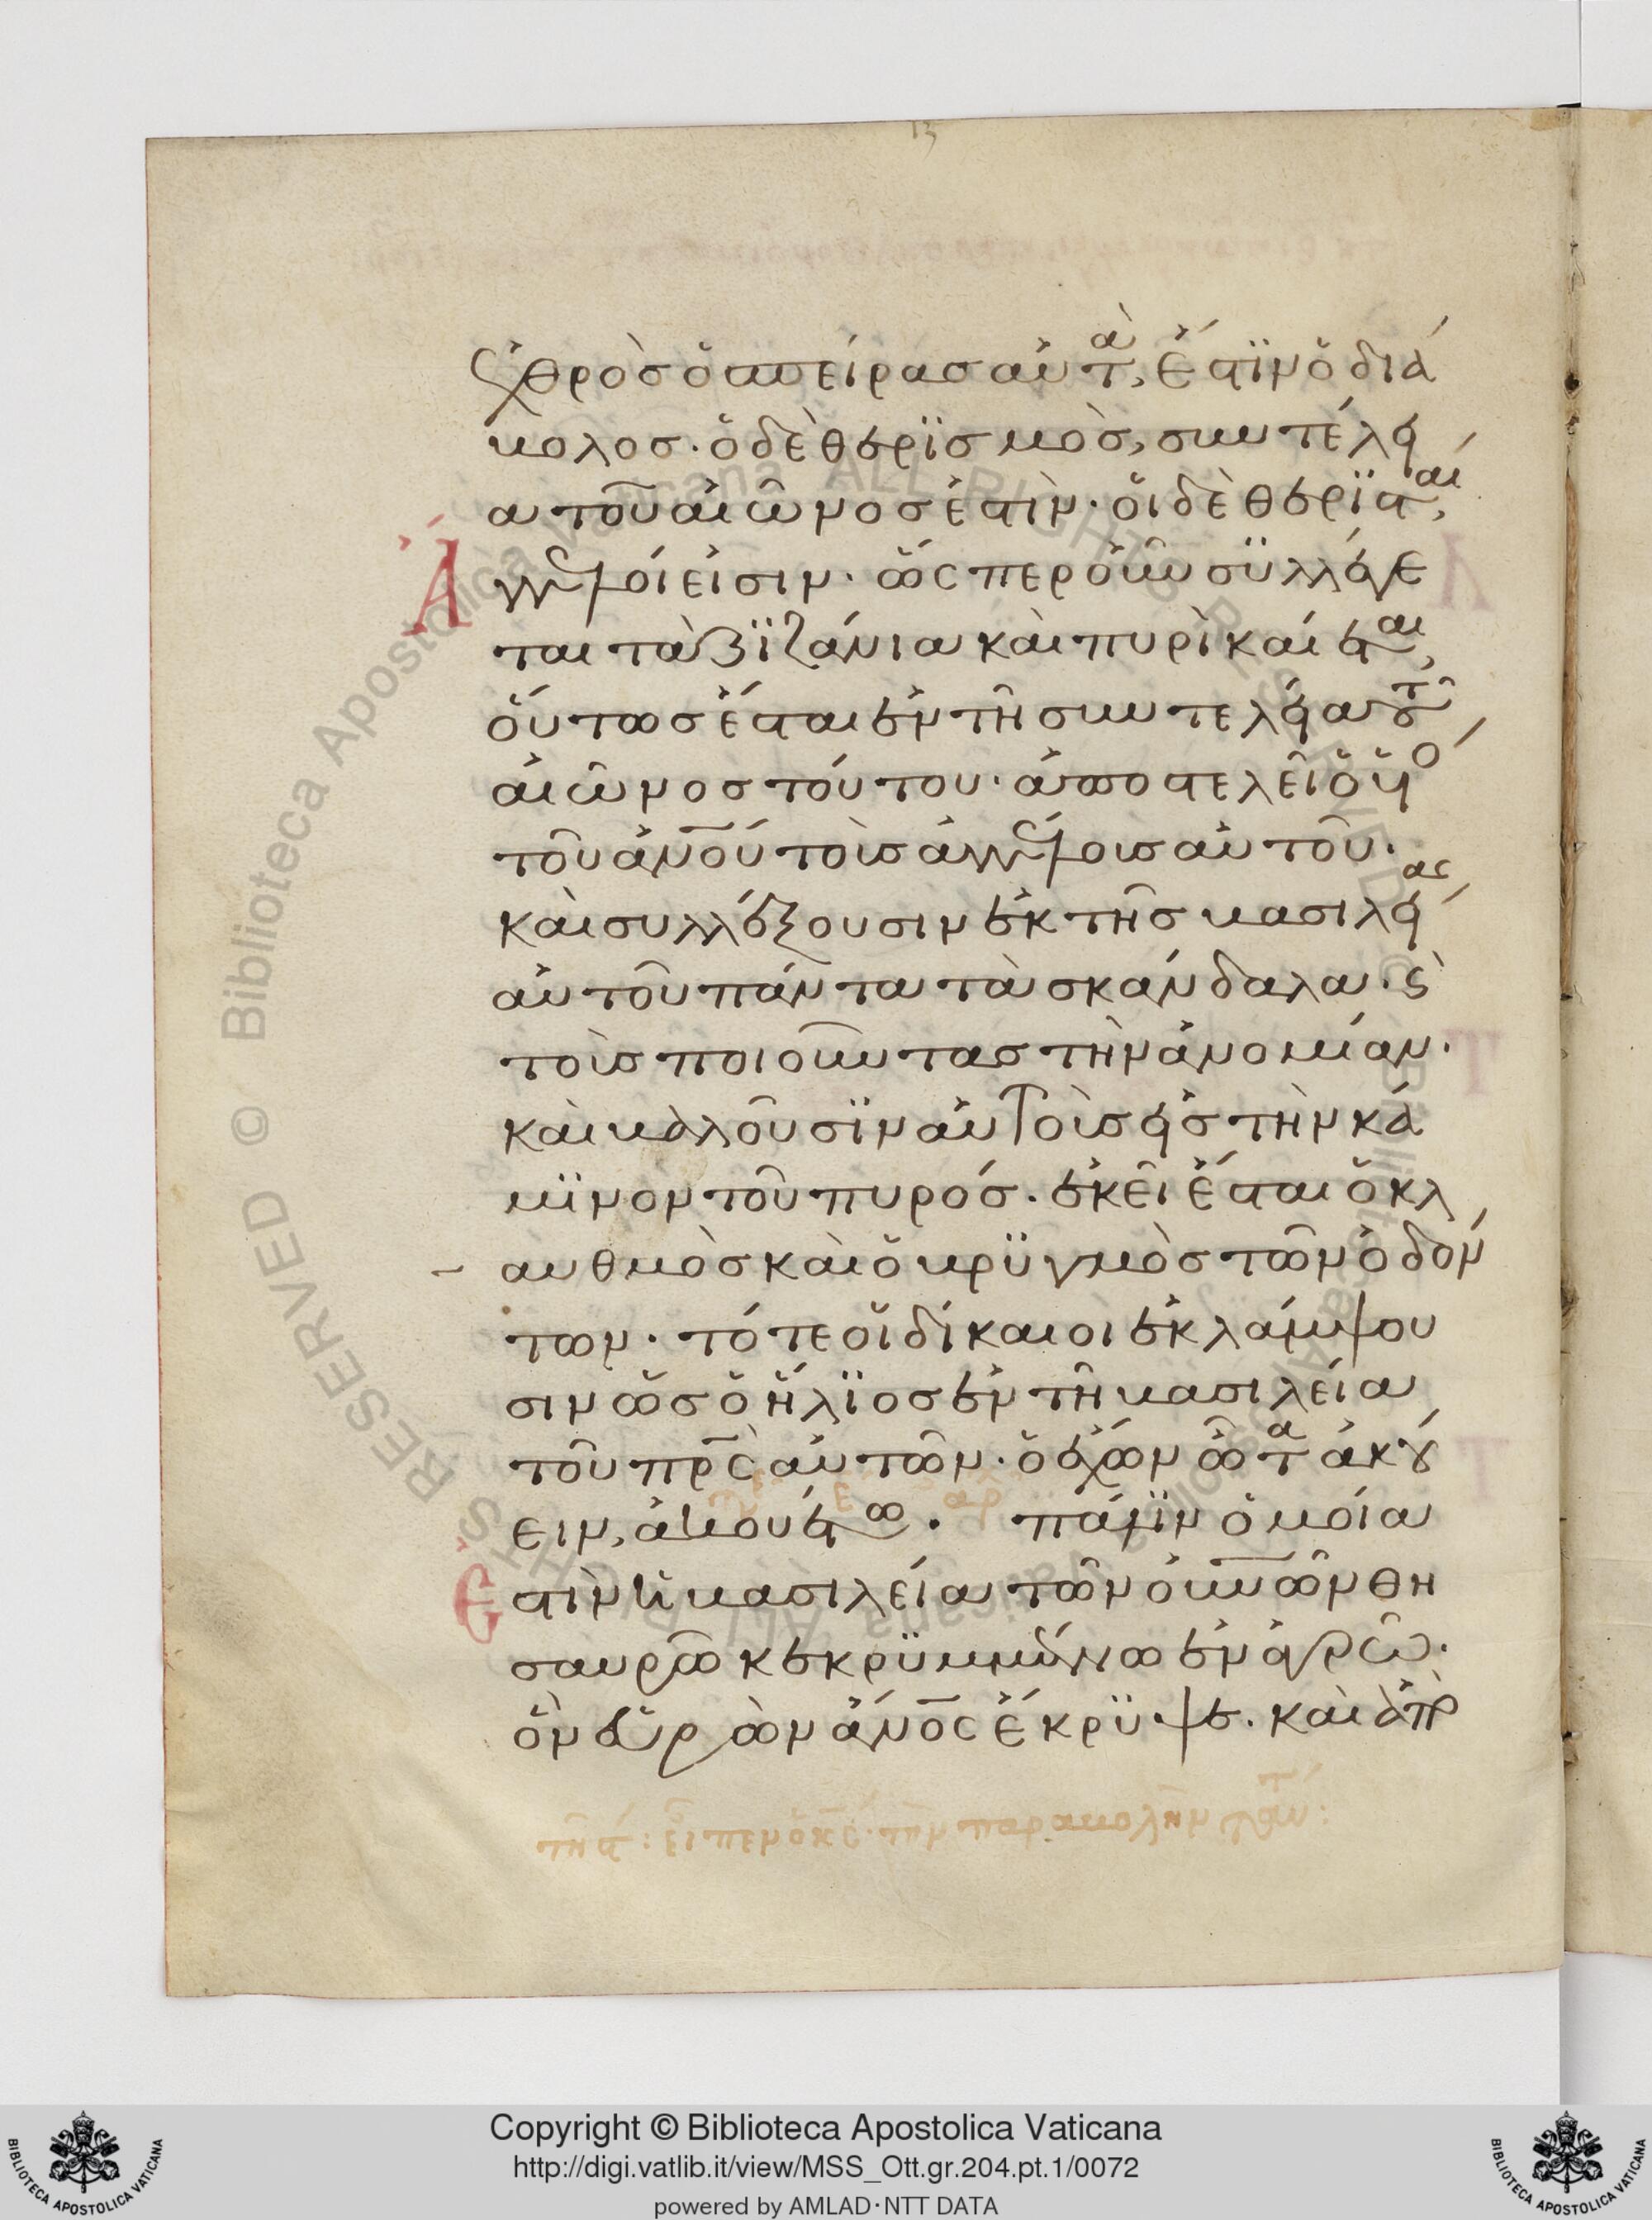 χθρὸσ ὁ σπείρασ αὐτὰ, ἔστϊν ὁ διά
βολοσ· ὁ δὲ θερϊσμὸσ, συντέλει
α τοῦ αἰῶνοσ ἐστὶν· ὁι δὲ θερϊσταὶ,
Ἄγγελοί εἰσιν· ὥσπερ οὖν σϋλλέγε
ται τὰ ζϊζάνια καὶ πυρὶ καίεται,
ὅυτωσ ἔσται ἐν τῆ συντελεία τοῦ
αἰῶνοσ τούτου· ἀποστελεῖ ὁ ὑιὸ
τοῦ ἀν̅ο̅υ̅ τοὺσ ἀγγέλουσ αὐτοῦ·
καὶ συλλέξουσιν ἐκ τῆσ βασιλείας
αὐτοῦ πάντα τὰ σκάνδαλα· ϛ̀
τοὺσ ποιοῦντασ τὴν ἀνομίαν·
καὶ βαλοῦσϊν αὐτοὺσ εἰσ τὴν κά
μϊνον τοῦ πυρόσ· ἐκεῖ ἔσται ὁ κλ
αυθμὸσ καὶ ὁ βρϋγμὸσ τῶν ὀδόν
των· τότε ὁι δίκαιοι ἐκλάμψου
σιν ὡσ ὁ ἥλϊοσ ἐν τῆ βασιλεία
τοῦ π̅ρ̅ς̅ αὐτῶν· ὁ ἔχων ὦτα ἀκού
ειν, ἀκουέτω· πάλϊν ὁμοία
Ἐστὶν ἡ βασιλεία τῶν ὀυ̅ν̅ῶν θη
σαυρῶ κεκρϋμμένω ἐν ἀγρῶ·
ὃν ἑυρὼν ἄν̅ο̅ς̅ ἔκρϋψε· καὶ ἀπὸ
Biblioteca Apostolica Vaticana ALL RIGHTS RESERVED ©
Copyright © Biblioteca Apostolica Vaticana
http://digi.vatlib.it/view/MSS_Ott.gr.204.pt.1/0072
powered by AMLAD·NTT DATA
BIBLIOTECA APOSTOLICA VATICANA
BIBLIOTECA APOSTOLICA VATICANA